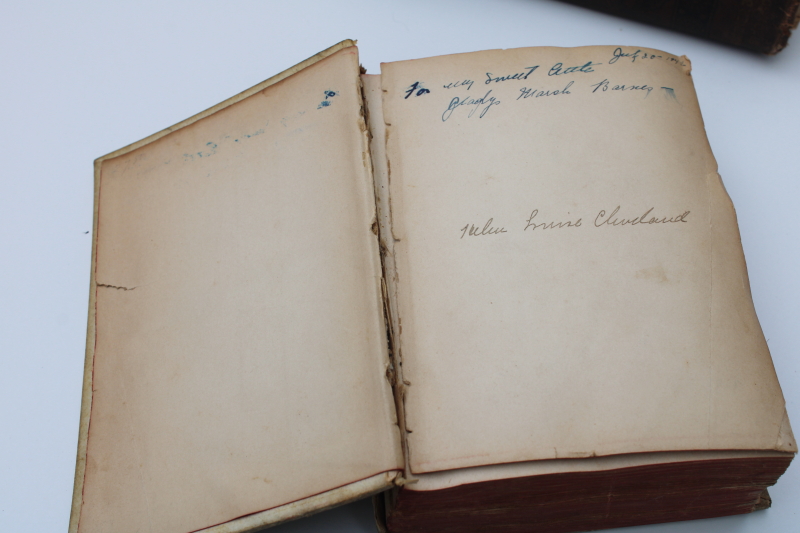 July 20 -
For my Sweet Little
Gladys Marsh Barnes -
Helen Louise Cleveland